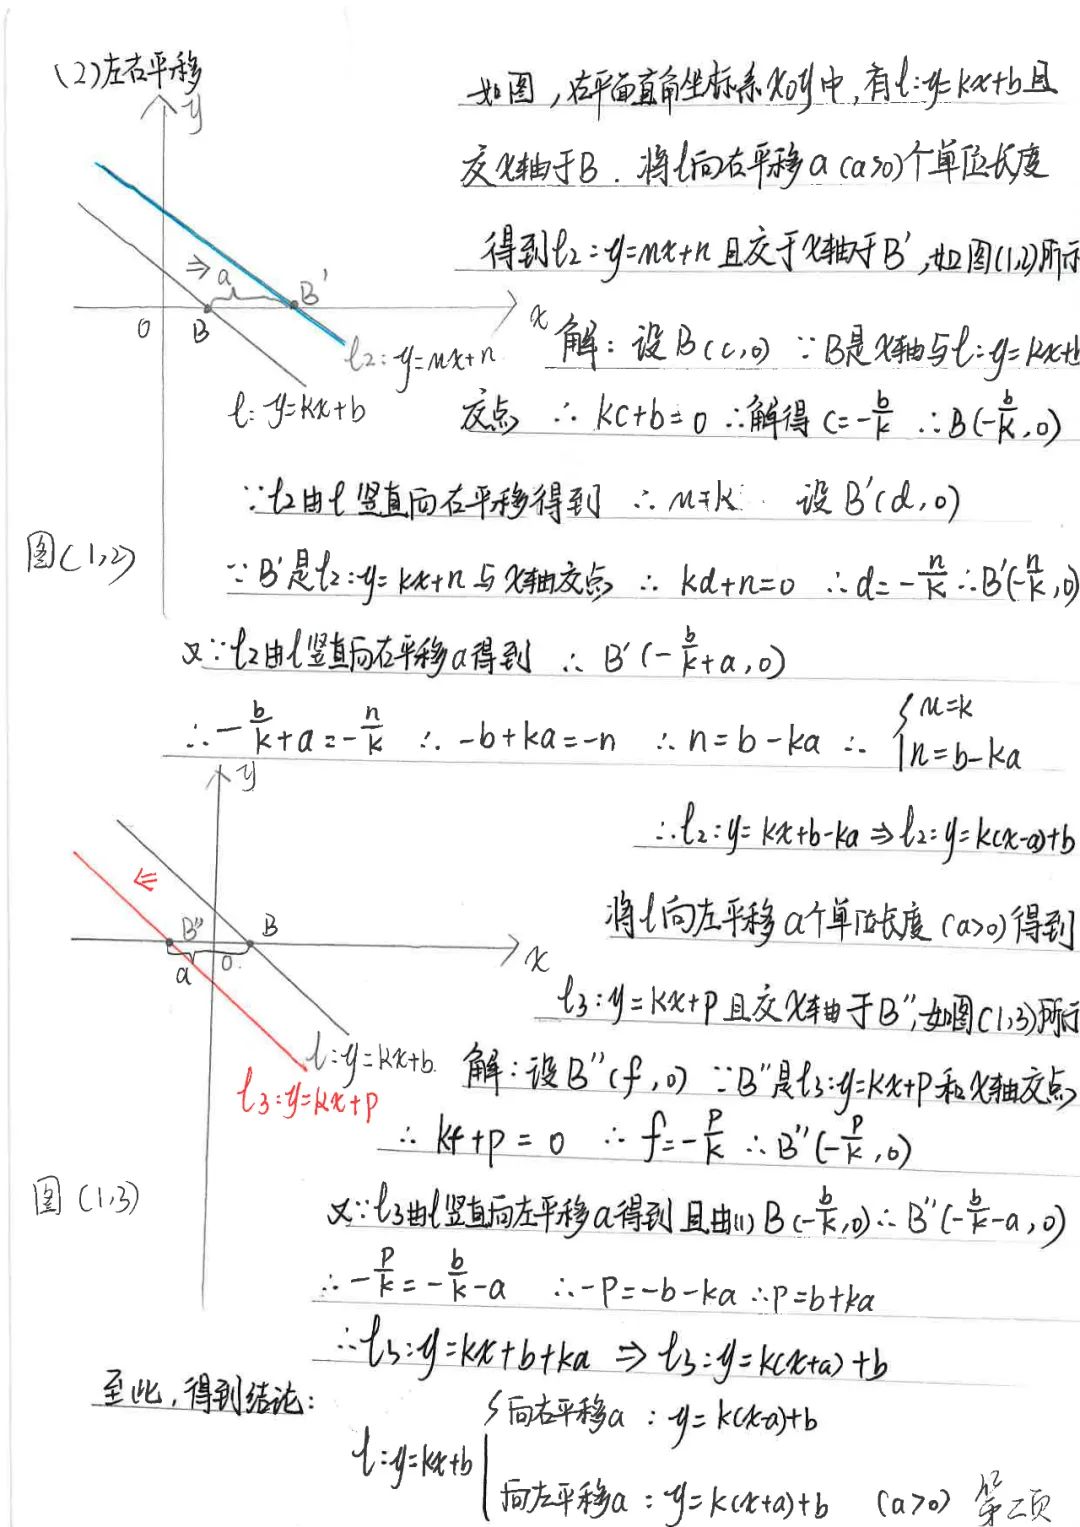 (2)左右平移
如图,在平面直角坐标系xoy中,有l:y=kx+b且
交x轴于B.将l向右平移a(a>0)个单位长度
得到l2:y=mx+n且交于x轴于B',如图(1,2)所示
y
⇒
a
B'
O
B
x
l2:y=mx+n
l:y=kx+b
解:设B(c,0) ∵B是x轴与l:y=kx+b
交点 ∴kc+b=0 ∴解得c=-b/k ∴B(-b/k,0)
∵l2由l竖直向右平移得到 ∴m=k 设B'(d,0)
图(1,2)
∵B'是l2:y=kx+n与x轴交点 ∴kd+n=0 ∴d=-n/k ∴B'(-n/k,0)
又∵l2由l竖直向右平移a得到 ∴B'(-b/k+a,0)
∴-b/k+a=-n/k ∴-b+ka=-n ∴n=b-ka ∴{m=k
n=b-ka
∴l2:y=kx+b-ka⇒l2:y=k(x-a)+b
y
⇐
B''
B
a
O
x
l:y=kx+b
l3:y=kx+p
将l向左平移a个单位长度(a>0)得到
l3:y=kx+p且交x轴于B'',如图(1,3)所示
解:设B''(f,0) ∵B''是l3:y=kx+p和x轴交点
∴kf+p=0 ∴f=-p/k ∴B''(-p/k,0)
图(1,3)
又∵l3由l竖直向左平移a得到且由(1)B(-b/k,0)∴B''(-b/k-a,0)
∴-p/k=-b/k-a ∴-p=-b-ka ∴p=b+ka
∴l3:y=kx+b+ka⇒l3:y=k(x+a)+b
至此,得到结论:
l:y=kx+b
{向右平移a:y=k(x-a)+b
向左平移a:y=k(x+a)+b (a>0)
第二页